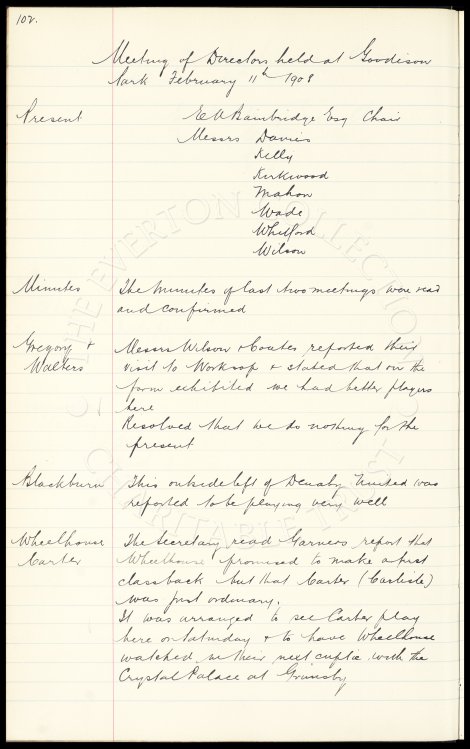 102.
Meeting of Directors held at Goodison
Park February 11th 1908
Present E A Bainbridge Esq Chair
Messrs Davies
Kelly
Kirkwood
Mahon
Wade
Whitford
Wilson
Minutes The Minutes of last two meetings were read
and confirmed
Gregory & Messrs Wilson & Coates reported their
Walters visit to Worksop & stated that on the
form exhibited we had better players
here
Resolved that we do nothing for the
present
Blackburn This outside left of Denaby United was
reported to be playing very well
Wheelhouse The Secretary read Garner's report that
Carter Wheelhouse promised to make a first
class back but that Carter (Carlisle)
was just ordinary.
It was arranged to see Carter play
here on Saturday & to have Wheelhouse
watched in their next cuptie with the
Crystal Palace at Grimsby
THE EVERTON COLLECTION
CHARITABLE TRUST